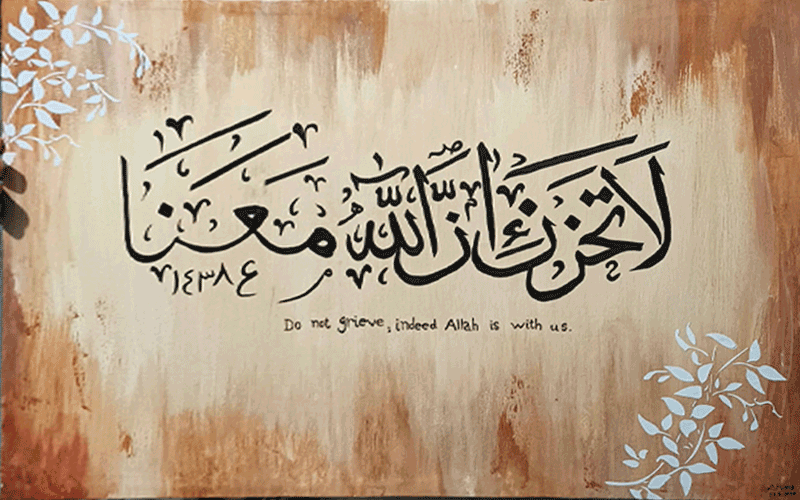 لَا تَحْزَنْ إِنَّ اللَّهَ مَعَنَا
١٤٣٨ ع
Do not grieve, indeed Allah is with us.